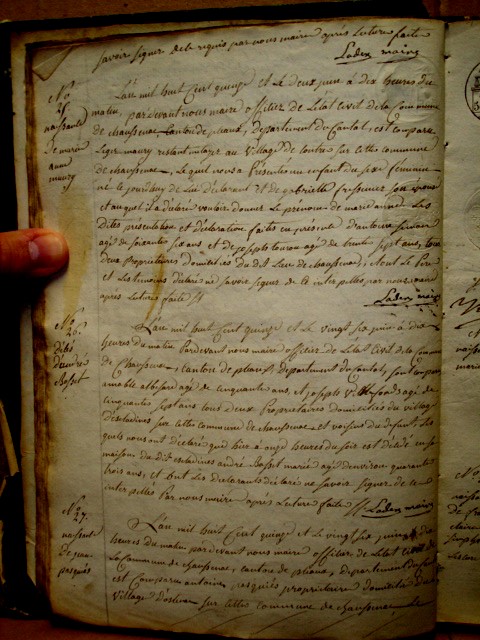 savoir signer de le requis par nous maire après lecture faite
Laden maire
No
25
naissance
de marie
anne
maury
L'an mil huit Cent quinze et le deux juin à dix heures du
matin, pardevant nous maire officier de L'état Civil de la Commune
de chaussenac Canton de pleaux, département du Cantal, est comparu
Leger maury restant métayer au Village de contres sur cette commune
de chaussenac, Lequel nous a Présenté un enfant du sexe féminin
né le jourd'huy de Lui déclarant Et de gabrielle fressiner son épouse
et auquel il a déclaré vouloir donner Le prénom de marie anne Les
Dites présentation et déclaration faites en présence d'antoine
agé de soixante six ans et de joseph touron agé de trente sept ans, tous
deux Proprietaires domiciliés du dit Lieu de chaussenac, et ont Le Père
et Les temoins déclaré ne savoir signer de le interpellés par nous maire
après Lecture faite //
Laden maire
No 26
décès
d'andré
Bosset
L'an mil huit Cent quinze et Le vingt six juin à dix
heures du matin Pardevant nous maire officier de L'état Civil de la Commune
de Chaussenac, Canton de pleaux, département du Cantal, sont comparus
amable agé de cinquante ans, et joseph agé de
cinquante sept ans tous deux Proprietaires domiciliés du village
d'escladines sur cette commune de chaussenac et voisins du defunt. Les
quels nous ont déclaré que hier à onze heures du soir est décédé en sa
maison du dit escladines andré Bosset marié agé d'environ quarante
trois ans, et ont Les déclarants déclaré ne savoir signer de le
interpellés Par nous maire après Lecture faite // Laden maire
No 27
naissance
de
pasquiés
L'an mil huit Cent quinze et Le vingt six juin à dix
heures du matin pardevant nous maire officier de L'état Civil de
La Commune de chaussenac, canton de pleaux, département du Cantal
est Comparu antoine pasquiés proprietaire domicilié du
Village d'ostenac sur cette commune de chaussenac Le